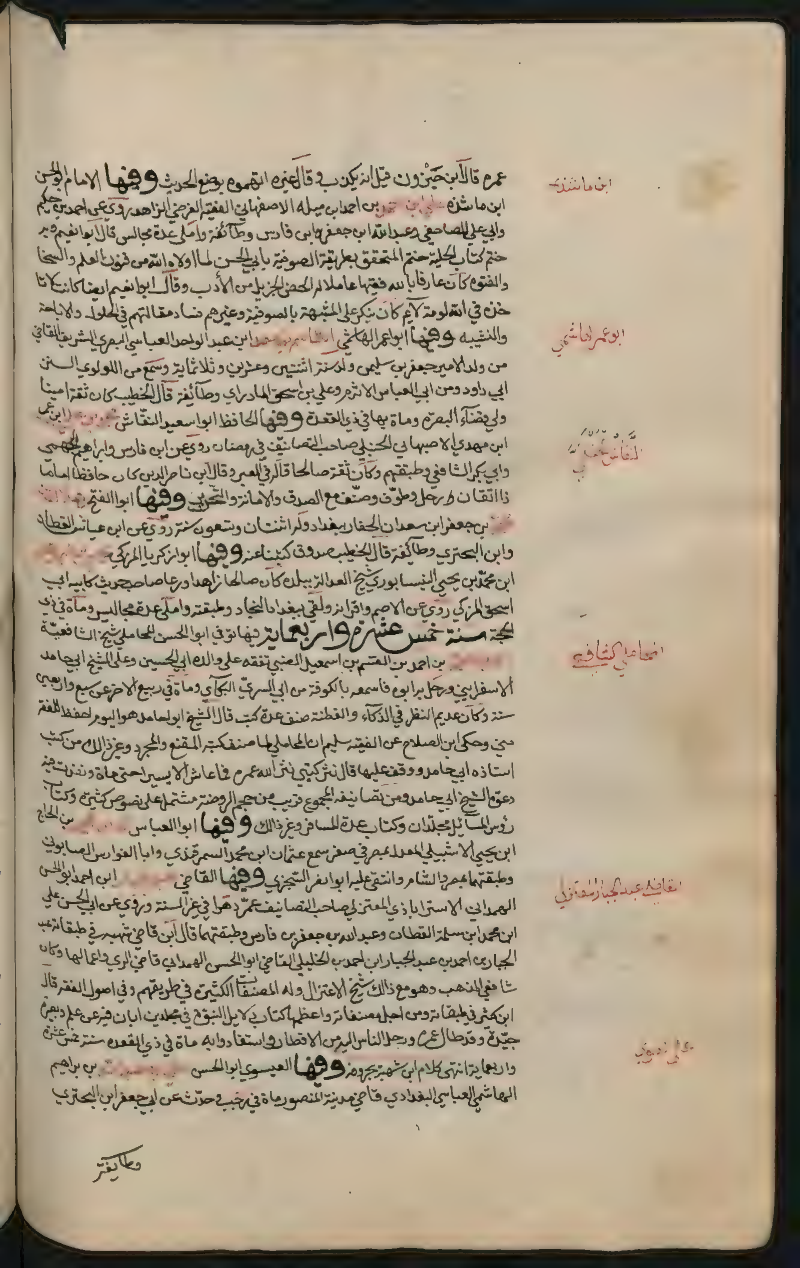 عمره قال ابن خيرون قيل انه يكذب وقال غيره اتهموه بوضع الحديث وفيها الامام ابو الحسن
ابن ماشذه
ابن ماشذه علي بن محمد بن احمد ابن ميله الاصفهاني الفقيه الفرضي الزاهد روى عن احمد بن حكيم
وابي علي المصاحفي وعبدالله ابن جعفر وابي فارس وطائفة واملى عدة مجالس قال ابو نعيم وبه
ختم كتاب الحلية ختم المتحقق بطريقة الصوفية بابي الحسن لما اولاه الله من فنون العلم والسخا
والفتوة كان عارفا بالله فقيها عاملا له الحظ الجزيل من الأدب وقال ابو نعيم ايضا كان لا تا
خذه في الله لومة لائم كان ينكر على المشبهة بالصوفية وغيرهم فساد مقالتهم في الحلول والاباحة
والتشبيه وفيها ابو عمر الهاشمي القاسم بن جعفر ابن عبد الواحد العباسي البصري الشريف القاضي
ابو عمر الهاشمي
من ولد الامير جعفر بن سليمان ولد سنة اثنتين وعشرين وثلاثماية وسمع من اللولوي السنن
ابي داود ومن ابي العباس الاثرم وعلي بن اسحق المادراي وطائفة قال الخطيب كان ثقة امينا
ولي قضاء البصرة ومات بها في ذي القعدة وفيها الحافظ ابو سعيد النقاش محمد بن علي ابن عمر
ابن مهدي الاصبهاني الحنبلي صاحب التصانيف في رمضان روى عن ابن فارس وابراهيم الجهمي
وابي بكر الشافعي وطبقتهم وكان ثقة صالحا قاله في العبر وقال ابن ناصر الدين كان حافظا اماما
ذا اتقان رحل وطوف وصنف مع الصدق والامانة والتحرير وفيها ابو الفتح
بن جعفر ابن سعدان الحفار ببغداد وله اثنتان وتسعون سنة روى عن ابن عياش القطان
وابن البختري وطائفة قال الخطيب صدوق كتبنا عنه وفيها ابو زكريا المزكي
ابن محمد بن يحيى النيسابوري شيخ العدالة ببلده كان صالحا زاهدا ورعا صاحب حديث كابيه ابي
اسحق المزكي روى عن الاصم واقرانه ولقي ببغداد النجاد وطبقته واملى عدة مجالس ومات في ذي
الحجة سنة خمس عشرة واربعماية فيها توفي ابو الحسن المحاملي شيخ الشافعية
المحاملي الشافعي
بن احمد بن القسم بن اسمعيل الضبي تفقه على والده ابي الحسين وعلى الشيخ ابي حامد
الاسفرايني ورحل به ابوه فاسمعه بالكوفة من ابن ابي السري البكائي ومات في ربيع الاخر عن سبع واربعين
سنة وكان عديم النظر في الذكاء والفطنة صنف عدة كتب قال الشيخ ابو حامد هو اليوم احفظ للفقه
مني وحكى ابن الصلاح عن الفقيه سليم ان المحاملي لما صنف كتبه المقنع والمجرد وغير ذلك من كتب
استاذه ابي حامد ووقف عليها قال نثر كتبي نثر الله عمره فما عاش الا يسيرا حتى مات ونفذت فيه
دعوة الشيخ ابي حامد ومن تصانيفه المجموع قريب من حجم الروضة مشتمل على نصوص كثيرة وكتاب
رؤس المسائل مجلدان وكتاب عدة المسافر وغير ذلك وفيها ابو العباس بن الحاج
ابن يحيى الاشبيلي المعدل بمصر في صفر سمع عثمان ابن محمد السمرقندي وابا الفوارس الصابوني
وطبقتهما بمصر والشام وانتقى عليه ابو نصر السجزي وفيها القاضي ابن احمد ابو الحسن
القاضي عبد الجبار المعتزلي
الهمداني الاستراباذي المعتزلي صاحب التصانيف عمر دهرا في غير السنة وروى عن ابي الحسن علي
ابن محمد ابن سلمة القطان وعبد الله بن جعفر بن فارس وطبقتهما قال ابن قاضي شهبه في طبقاته عبد
الجبار بن احمد بن عبد الجبار ابن احمد بن الخليلي القاضي ابو الحسن الهمداني قاضي الري واعمالها وكان
شافعي المذهب وهو مع ذلك شيخ الاعتزال وله المصنفات الكثيرة في طريقهم وفي اصول الفقه قال
ابن كثير في طبقاته ومن اجل مصنفاته واعظمها كتاب دلايل النبوة في مجلدين ابان فيه عن علم وبصيرة
جيدة وقد طال عمره ورحل الناس اليه من الاقطار واستفادوا به مات في ذي القعدة سنة خمس عشرة
واربعماية انتهى كلام ابن شهبة بحروفه وفيها العيسوي ابو الحسن بن براهيم
الهاشمي العباسي البغدادي قاضي مدينة المنصور مات في رجب وحدث عن ابي جعفر ابن البختري
وطايفة